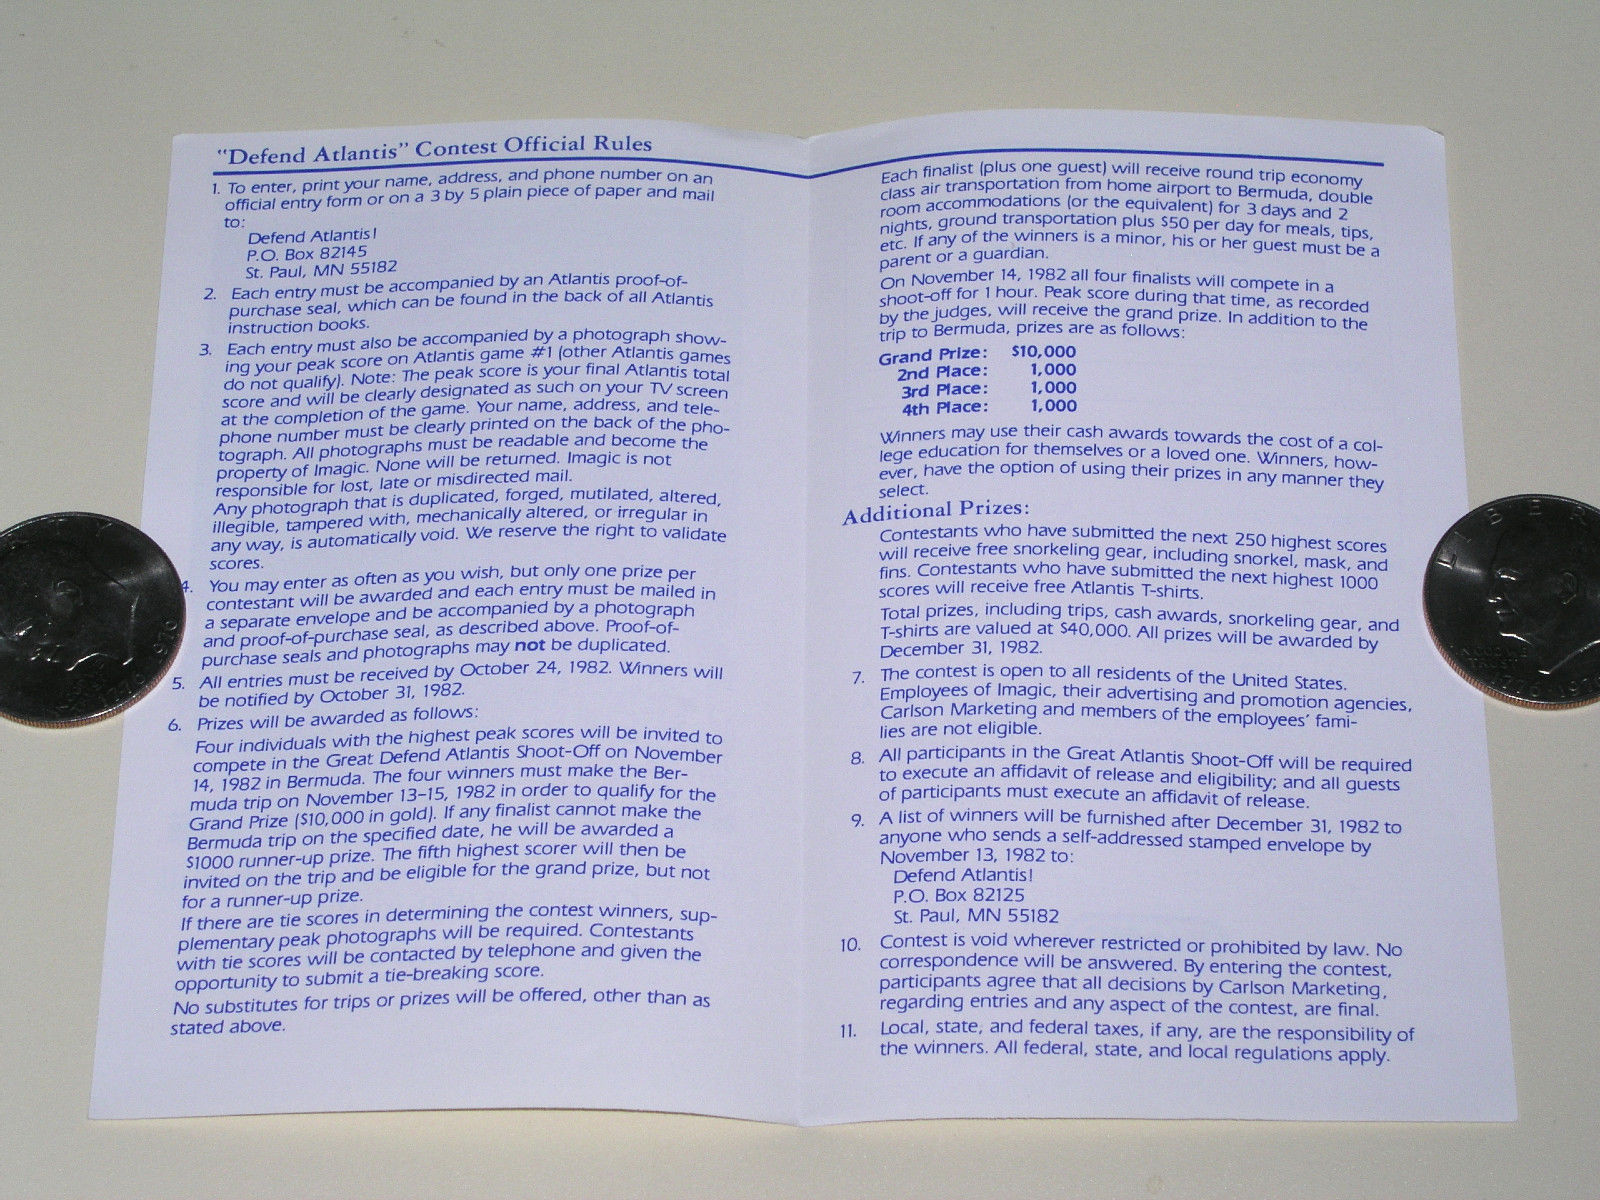 "Defend Atlantis" Contest Official Rules
1. To enter, print your name, address, and phone number on an
official entry form or on a 3 by 5 plain piece of paper and mail
to:
Defend Atlantis!
P.O. Box 82145
St. Paul, MN 55182
2. Each entry must be accompanied by an Atlantis proof-of-
purchase seal, which can be found in the back of all Atlantis
instruction books.
3. Each entry must also be accompanied by a photograph show-
ing your peak score on Atlantis game #1 (other Atlantis games
do not qualify). Note: The peak score is your final Atlantis total
score and will be clearly designated as such on your TV screen
at the completion of the game. Your name, address, and tele-
phone number must be clearly printed on the back of the pho-
tograph. All photographs must be readable and become the
property of Imagic. None will be returned. Imagic is not
responsible for lost, late or misdirected mail.
Any photograph that is duplicated, forged, mutilated, altered,
illegible, tampered with, mechanically altered, or irregular in
any way, is automatically void. We reserve the right to validate
scores.
4. You may enter as often as you wish, but only one prize per
contestant will be awarded and each entry must be mailed in
a separate envelope and be accompanied by a photograph
and proof-of-purchase seal, as described above. Proof-of-
purchase seals and photographs may not be duplicated.
5. All entries must be received by October 24, 1982. Winners will
be notified by October 31, 1982.
6. Prizes will be awarded as follows:
Four individuals with the highest peak scores will be invited to
compete in the Great Defend Atlantis Shoot-Off on November
14, 1982 in Bermuda. The four winners must make the Ber-
muda trip on November 13-15, 1982 in order to qualify for the
Grand Prize ($10,000 in gold). If any finalist cannot make the
Bermuda trip on the specified date, he will be awarded a
$1000 runner-up prize. The fifth highest scorer will then be
invited on the trip and be eligible for the grand prize, but not
for a runner-up prize.
If there are tie scores in determining the contest winners, sup-
plementary peak photographs will be required. Contestants
with tie scores will be contacted by telephone and given the
opportunity to submit a tie-breaking score.
No substitutes for trips or prizes will be offered, other than as
stated above.
Each finalist (plus one guest) will receive round trip economy
class air transportation from home airport to Bermuda, double
room accommodations (or the equivalent) for 3 days and 2
nights, ground transportation plus $50 per day for meals, tips,
etc. If any of the winners is a minor, his or her guest must be a
parent or a guardian.
On November 14, 1982 all four finalists will compete in a
shoot-off for 1 hour. Peak score during that time, as recorded
by the judges, will receive the grand prize. In addition to the
trip to Bermuda, prizes are as follows:
Grand Prize: $10,000
2nd Place: 1,000
3rd Place: 1,000
4th Place: 1,000
Winners may use their cash awards towards the cost of a col-
lege education for themselves or a loved one. Winners, how-
ever, have the option of using their prizes in any manner they
select.
Additional Prizes:
Contestants who have submitted the next 250 highest scores
will receive free snorkeling gear, including snorkel, mask, and
fins. Contestants who have submitted the next highest 1000
scores will receive free Atlantis T-shirts.
Total prizes, including trips, cash awards, snorkeling gear, and
T-shirts are valued at $40,000. All prizes will be awarded by
December 31, 1982.
7. The contest is open to all residents of the United States.
Employees of Imagic, their advertising and promotion agencies,
Carlson Marketing and members of the employees' fami-
lies are not eligible.
8. All participants in the Great Atlantis Shoot-Off will be required
to execute an affidavit of release and eligibility; and all guests
of participants must execute an affidavit of release.
9. A list of winners will be furnished after December 31, 1982 to
anyone who sends a self-addressed stamped envelope by
November 13, 1982 to:
Defend Atlantis!
P.O. Box 82125
St. Paul, MN 55182
10. Contest is void wherever restricted or prohibited by law. No
correspondence will be answered. By entering the contest,
participants agree that all decisions by Carlson Marketing,
regarding entries and any aspect of the contest, are final.
11. Local, state, and federal taxes, if any, are the responsibility of
the winners. All federal, state, and local regulations apply.